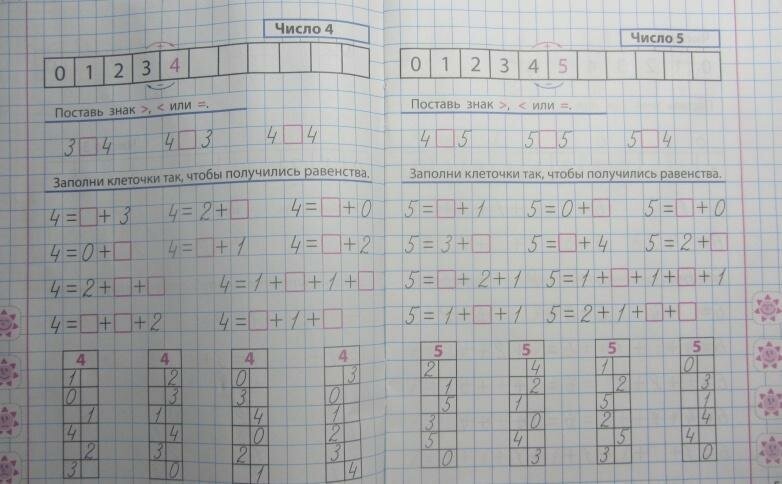 Число 4
0 1 2 3 4
+
−
Поставь знак >, < или =.
3□4 4□3 4□4
Заполни клеточки так, чтобы получились равенства.
4=□+3 4=2+□ 4=□+0
4=0+□ 4=□+1 4=□+2
4=2+□+□ 4=1+□+1+□
4=□+□+2 4=□+1+□
4 4 4 4
1 2 0 3
0 3 3 0
1 1 4 1
4 4 0 2
2 3 2 3
3 0 1 4
Число 5
0 1 2 3 4 5
+
−
Поставь знак >, < или =.
4□5 5□5 5□4
Заполни клеточки так, чтобы получились равенства.
5=□+1 5=0+□ 5=□+0
5=3+□ 5=□+4 5=2+□
5=□+2+1 5=1+□+1+□+1
5=1+□+1 5=2+1+□+□
5 5 5 5
2 4 1 0
1 2 2 3
5 1 5 1
3 0 2 4
5 4 5 4
0 3 3 0